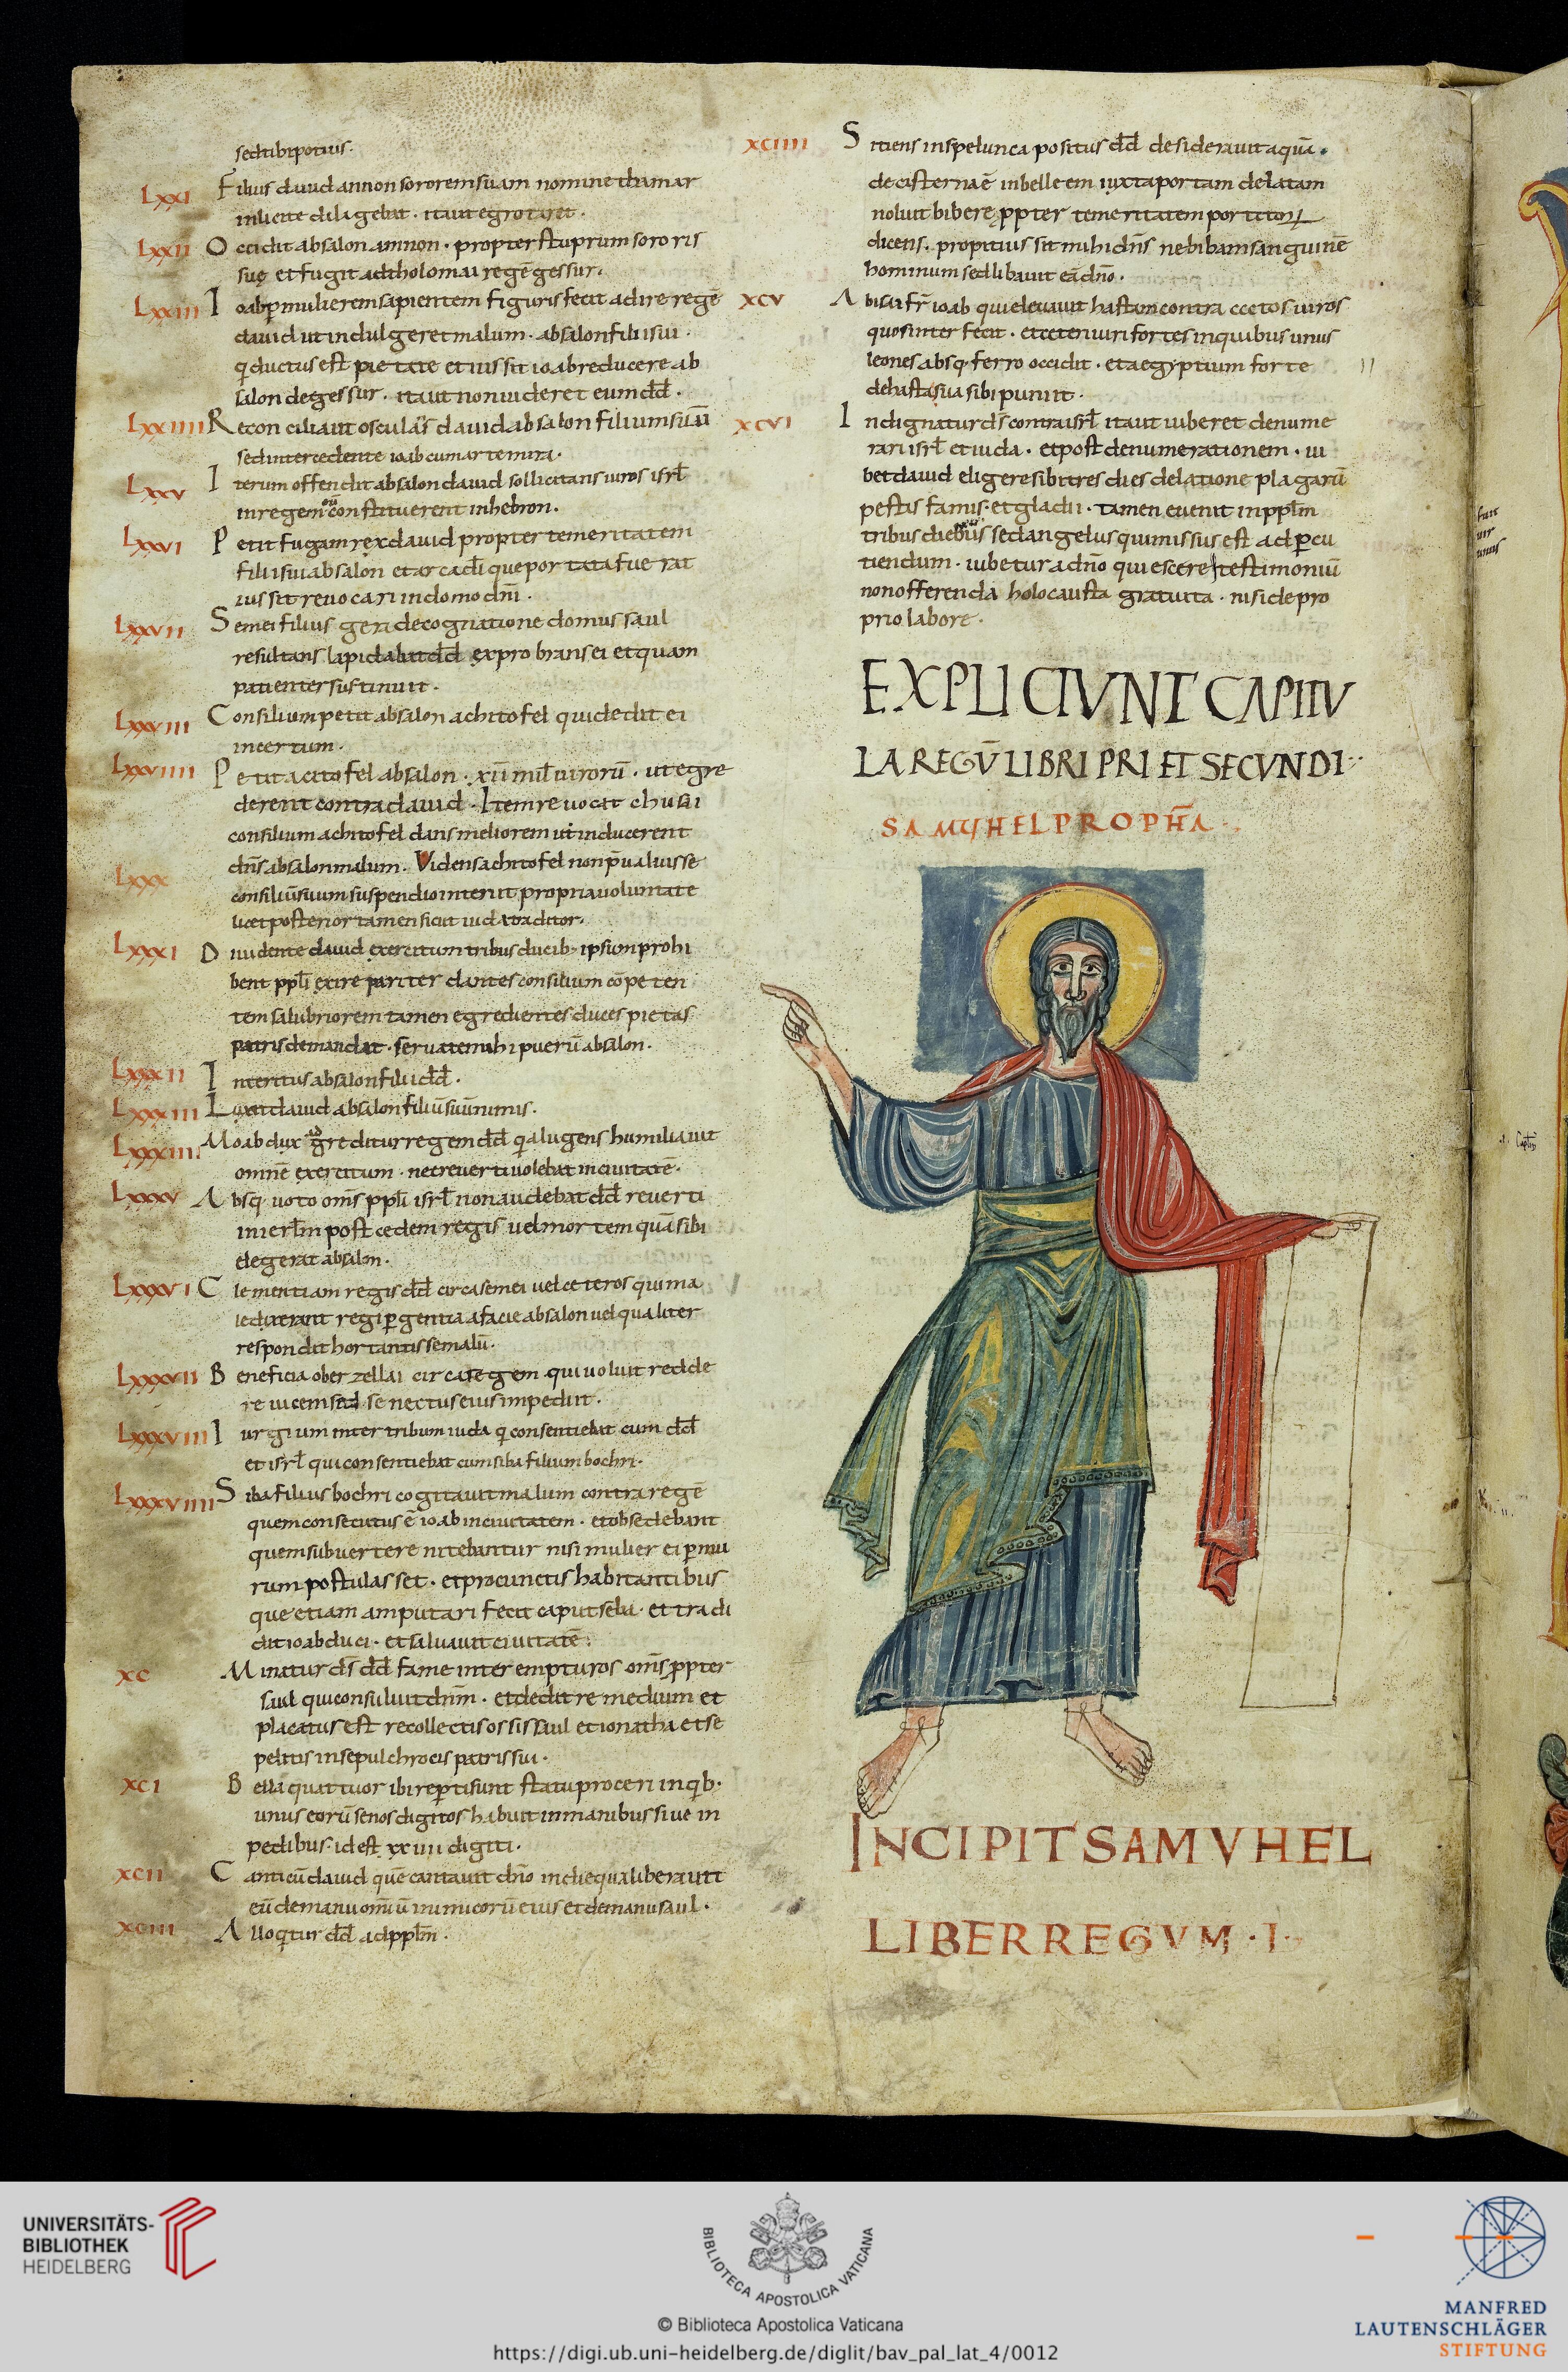 sed tibi potius.
LXXI Filius dauid amnon sororem suam nomine thamar
inlicite diligebat. ita ut egrotaret.
LXXII Occidit absalon amnon. propter stuprum sororis
suę et fugit ad tholomai regē gessur.
LXXIII Ioab ꝑ mulierem sapientem figuris fecit adire regē
dauid ut indulgeret malum. absalon filii sui.
q ductus est pietate et iussit ioab reducere ab
salon de gessur. ita ut non uideret eum dd̄.
LXXIIII Reconciliauit dauid absalon filium suū
sed intercedente ioab cum artemira.
LXXV Iterum offendit absalon dauid sollicitans uiros isrl̄
in regem constituerent in hebron.
LXXVI Petit fugam rex dauid propter temeritatem
filii sui absalon et arca dī que portata fuerat
iussit reuocari in domo dn̄i.
LXXVII Semei filius gera de cognatione domus saul
resultans lapidabat dd̄ exprobrans ei et quam
patienter sustinuit.
LXXVIII Consilium petit absalon achitofel qui dedit ei
incertum.
LXXVIIII Petit acitofel absalon. xii mil uirorū. ut egre
derent contra dauid. Item reuocat chusai
consilium achitofel dans meliorem ut inducerent
dn̄s absalon malum. Videns achitofel non p̄ualuisse
LXXX consiliū suum suspendio interiit propria uoluntate
licet posterior tamen sicut iuda traditor.
LXXXI Diuidente dauid exercitum tribus ducib; ipsum prohi
bent ppl̄i exire pariter dantes consilium cōpeten
tem salubriorem tamen egredientes duces pietas
patris demandat. seruate mihi puerū absalon.
LXXXII Interitus absalon filii dd̄.
LXXXIII Luxit dauid absalon filiū suū nimis.
LXXXIIII Moab dux greditur regem dd̄ q̄a lugens humiliauit
omnē exercitum. nec reuerti uolebat in ciuitatē.
LXXXV Absq; uoto om̄s ppl̄i isrl̄ non audebat dd̄ reuerti
in ierl̄m post cedem regis uel mortem quā sibi
elegerat absalon.
LXXXVI Clementiam regis dd̄ circa semei uel ceteros qui ma
ledixerant regi ꝑgentia a facie absalon uel qualiter
respondit hortantis se malū.
LXXXVII Beneficia oberzellai circa regem qui uoluit redde
re uicem sed senectus eius impediit.
LXXXVIII Iurgium inter tribum iuda q consentiebat cum dd̄
et isrl̄ qui consentiebat cum siba filium bochri.
LXXXVIIII Siba filius bochri cogitauit malum contra regē
quem consecutus ē ioab in ciuitatem. et obsedebant
quem subuertere nitebantur nisi mulier ei ꝑ mu
rum postulasset. et pro cunctis habitantibus
que etiam amputari fecit caput seba. et tradi
dit ioab duci. et saluauit ciuitatē.
XC Minatur dī dd̄ fame interempturos om̄s ꝓpter
saul qui consuluit dn̄m. et dedit remedium et
placatus est recollectis ossis saul et ionatha et se
pelitis in sepulchro cis patris sui.
XCI Bella quattuor ibi reꝑti sunt statu proceri in q̄b;
unus eorū senos digitos habuit in manibus siue in
pedibus. id est xxiiii digiti.
XCII Canticū dauid quē cantauit dn̄o in die qua liberauit
eū de manu omiū inimicorū eius et de manu saul.
XCIII Alloq̄tur dd̄ ad ppl̄m.
XCIIII Sitiens in spelunca positus dd̄ desiderauit aquā.
de cisterna ē in belleem iuxta portam delatam
noluit bibere ꝓpter temeritatem portitorꝝ
dicens. propitius sit mihi dn̄s ne bibam sanguinē
hominum sed libauit eā dn̄o.
XCV Abisai fr̄ ioab qui eleuauit hastam contra cccctos uiros
quos interfecit. et ceteri uiri fortes in quibus unus
leones absq; ferro occidit. et aegyptium forte
de hasta sua sibi puniit.
XCVI Indignatur dī contra isrl̄ ita ut iuberet denume
rari isrl̄ et iuda. et post denumerationem. iu
bet dauid eligere sibi tres dies delatione plagarū
pestis famis. et gladii. tamen euenit in ppl̄m
tribus diebus sed angelus qui missus est ad ꝑcu
tiendum. iubetur a dn̄o quiescere testimoniū
non offerenda holocausta gratuita. nisi de pro
prio labore.
EXPLICIVNT CAPITV
LA REGV̄ LIBRI PRI ET SECVNDI
SAMUHEL PROPH̄A
INCIPIT SAMVHEL
LIBER REGVM . I.
UNIVERSITÄTS-
BIBLIOTHEK
HEIDELBERG
BIBLIOTECA APOSTOLICA VATICANA
© Biblioteca Apostolica Vaticana
https://digi.ub.uni-heidelberg.de/diglit/bav_pal_lat_4/0012
MANFRED
LAUTENSCHLÄGER
STIFTUNG